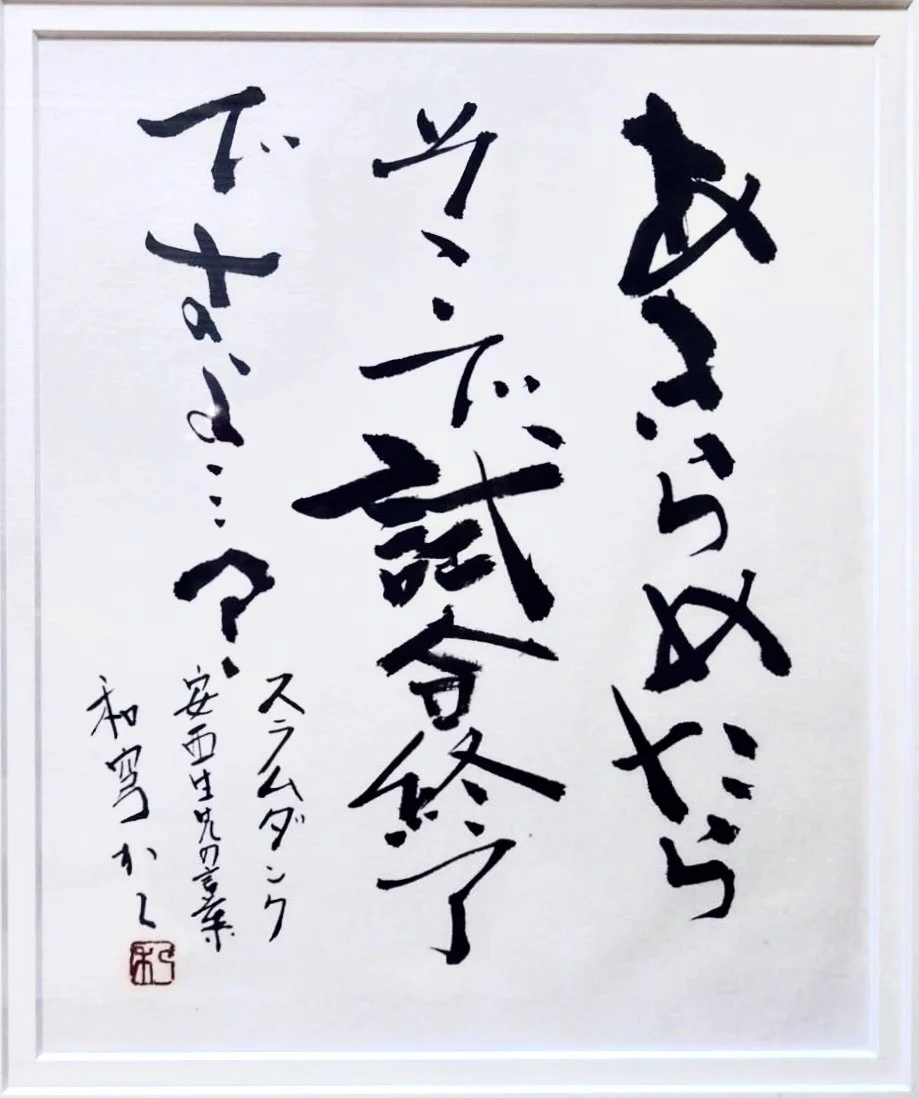 あきらめたら
そこで試合終了
ですよ…？
スラムダンク
安西先生の言葉
和穹かく